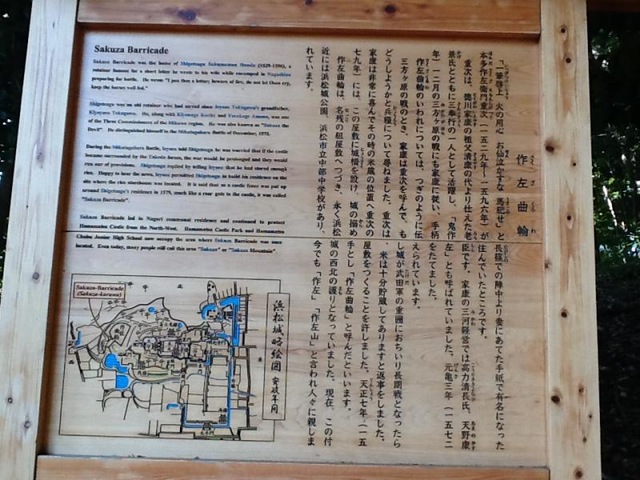 Sakuza Barricade
Sakuza Barricade was the home of Shigetsugu Sakuzaemon Honda (1529-1596), a
retainer famous for a short letter he wrote to his wife while encamped in Nagashino
preparing for battle. He wrote "I pen thee a letter; beware of fire, do not let Osen cry,
keep the horses well fed."
Shigetsugu was an old retainer who had served since Ieyasu Tokugawa's grandfather,
Kiyoyasu Tokugawa. He, along with Kiyonaga Kouriki and Yasukage Amano, was one
of the Three Commissioners of the Mikawa region. He was also known as "Sakuza the
Devil". He distinguished himself in the Mikatagahara Battle of December, 1572.
During the Mikatagahara Battle, Ieyasu said Shigetsugu he was worried that if the castle
became surrounded by the Takeda forces, the war would be prolonged and they would
run out of provisions. Shigetsugu replied by telling Ieyasu that he had stored enough
rice. Happy to hear the news, Ieyasu permitted Shigetsugu to build his residence on the
site where the rice storehouse was located. It is said that as a castle fence was put up
around Shigetsugu's residence in 1579, much like a rear gate to the castle, it was called
"Sakuza Barricade".
Sakuza Barricade led to Naguri communal residence and continued to protect
Hamamatsu Castle from the North-West. Hamamatsu Castle Park and Hamamatsu
Chubu Junior High School now occupy the area where Sakuza Barricade was once
located. Even today, many people still call this area "Sakuza" or "Sakuza Mountain"
作左曲輪
「一筆啓上 火の用心 お仙泣かすな 馬肥せ」と長篠での陣中より妻にあてた手紙で有名になった
本多作左衛門重次(一五二九年~一五九六年)が住んでいたところです。
重次は、徳川家康の祖父清康の代より仕えた老臣です。家康の三河経営では高力清長氏、天野康
景氏とともに三奉行の一人として活躍し、「鬼作左」とも呼ばれていました。元亀三年(一五七二
年)十二月の三方ヶ原の戦にも家康に従い、手柄をたてました。
作左曲輪のいわれについては、つぎのように伝えられています。
三方ヶ原の戦のとき、家康は重次を呼んで、もし城が武田軍の重囲におちいり長期戦となったら
どうしようかと兵糧について尋ねました。重次は、米は十分貯蔵してありますと返事をしました。
家康は非常に喜んでその時の米蔵の位置へ重次の屋敷をつくることを許しました。天正七年(一五
七九年)には、この屋敷に城櫓を設け、城の搦め手とし「作左曲輪」と呼んだといいます。
作左曲輪は、名残の組屋敷へつづき、永く浜松城の西北の護りとなっていました。現在、この付
近には浜松城公園、浜松市立中部中学校があり、今でも「作左」「作左山」と言われ人々に親しま
れています。
Sakuza-Barricade
(Sakuza-kuruwa)
浜松城略絵図 安政年間